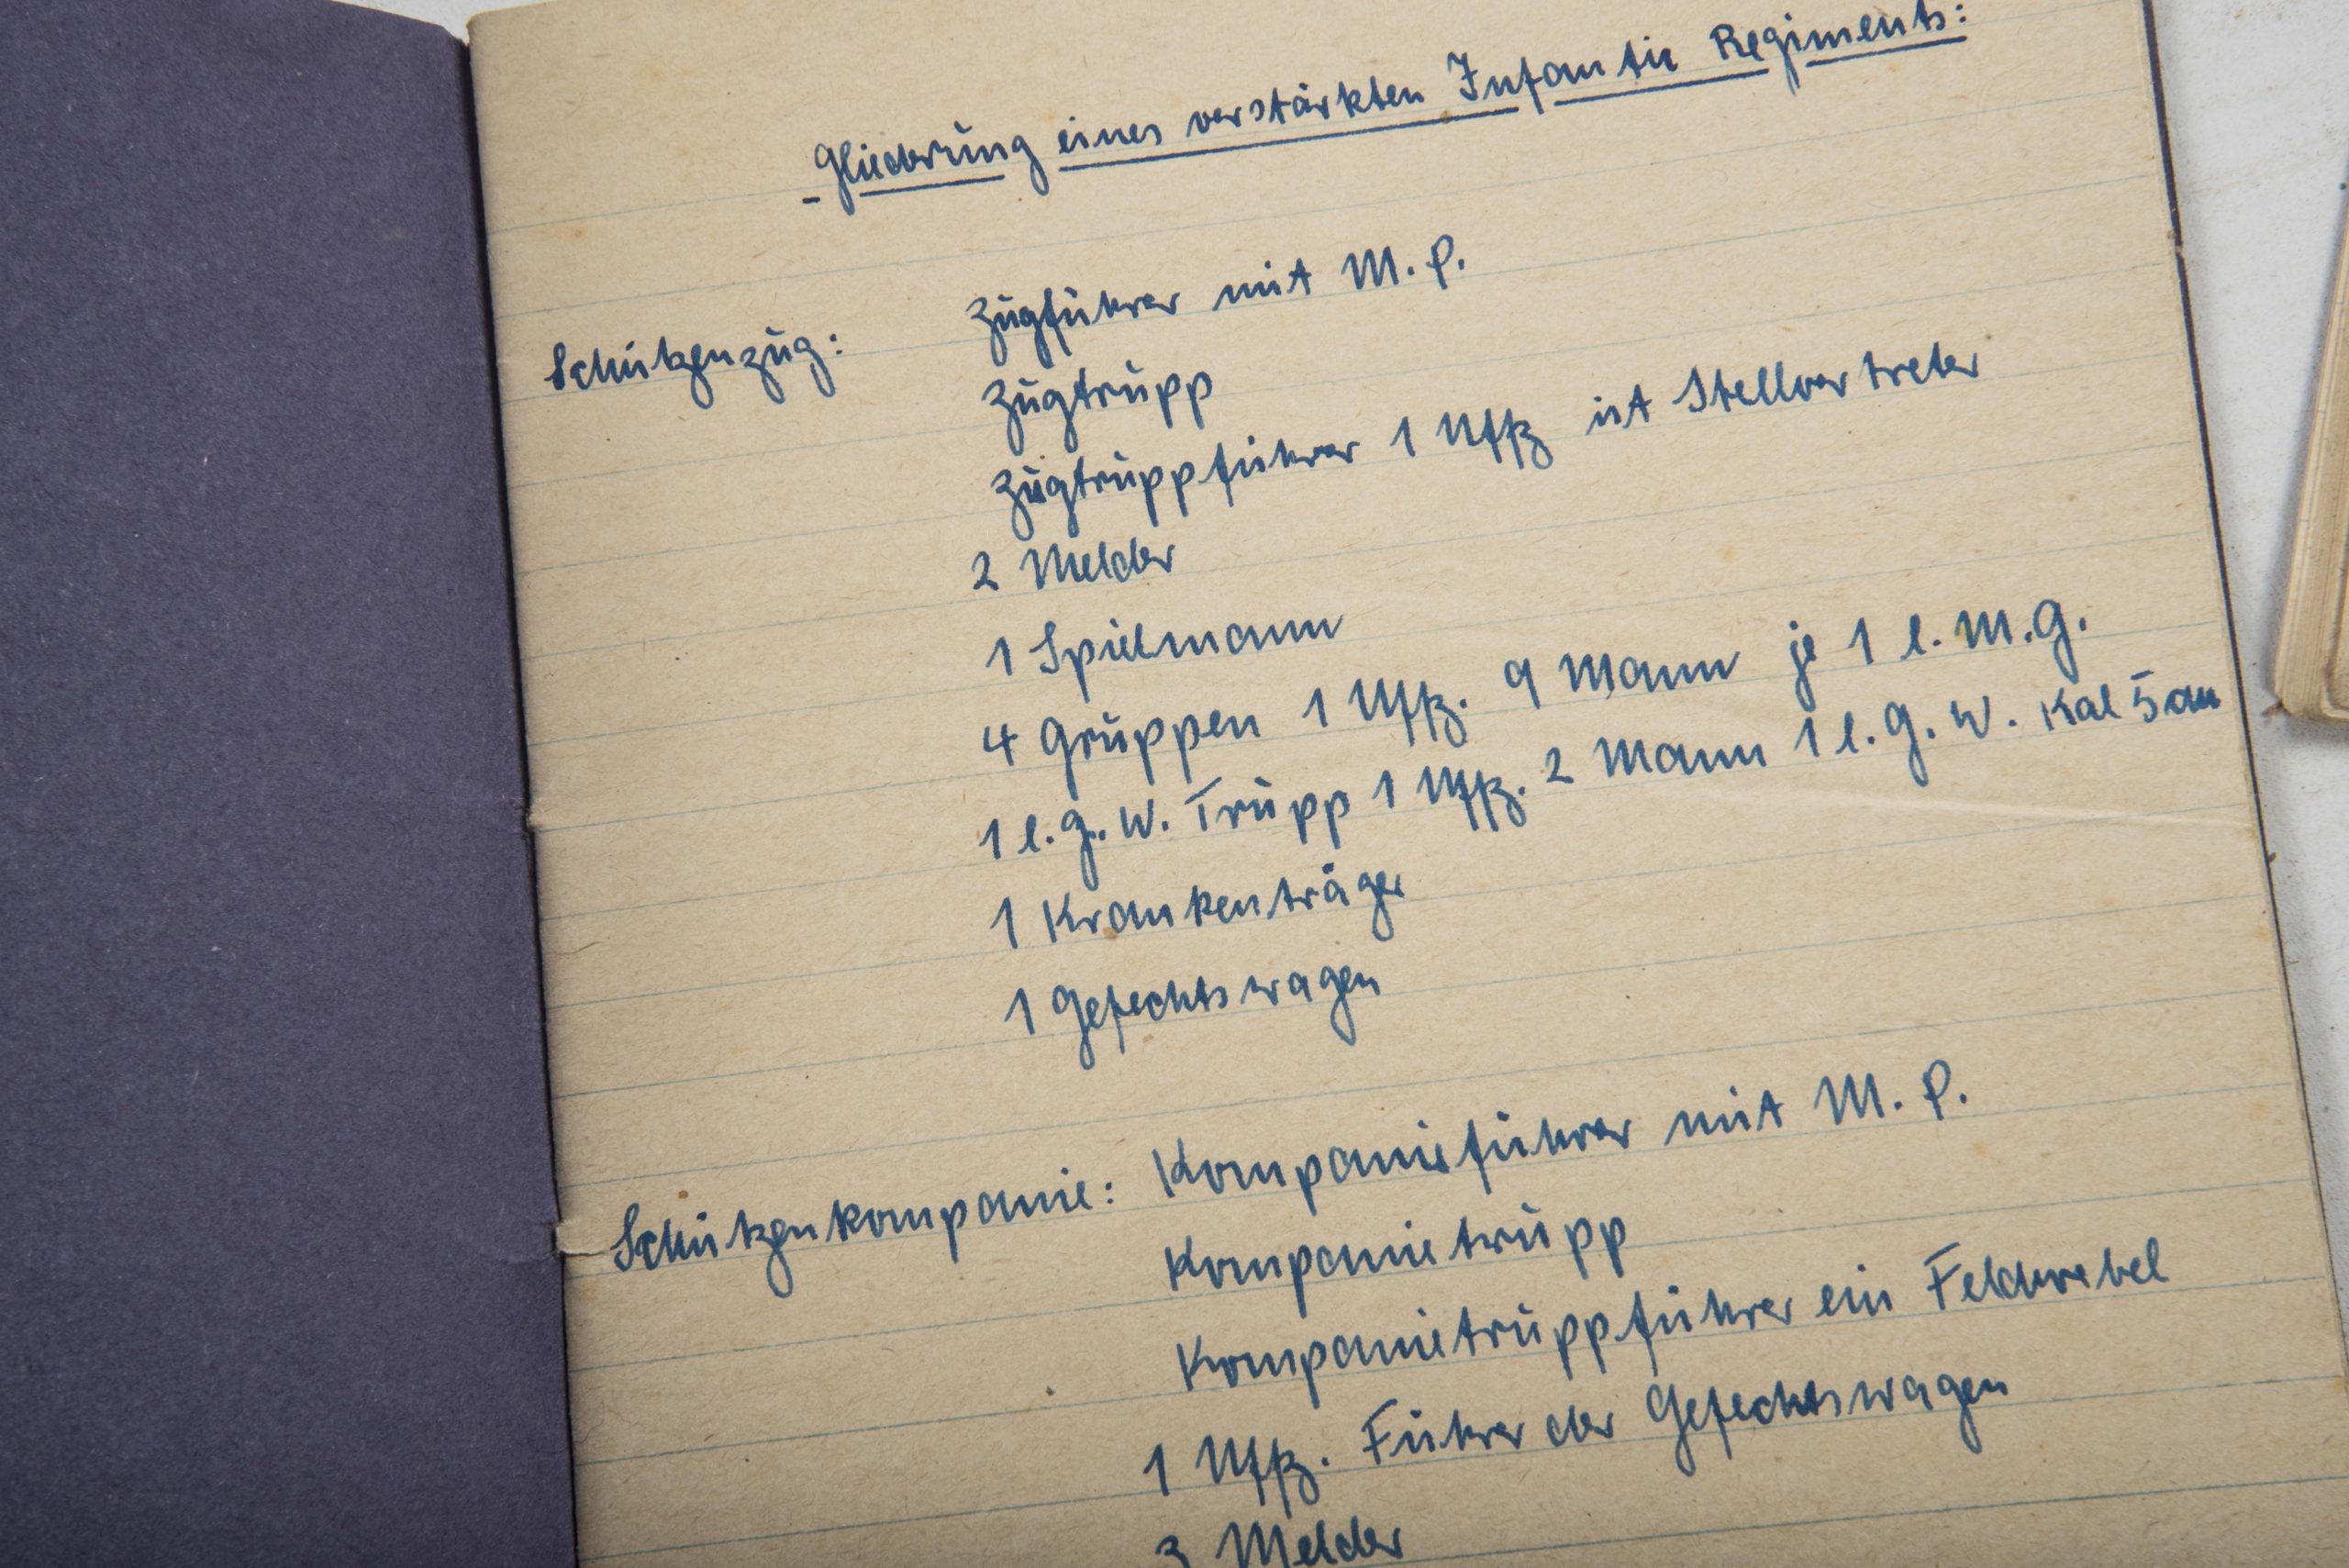 Gliederung eines verstärkten Infantrie Regiments:
Schützenzug: Zugführer mit M.P.
Zugtrupp
Zugtruppführer 1 Uffz ist Stellvertreter
2 Melder
1 Spielmann
4 Gruppen 1 Uffz. 9 Mann je 1 l. M.G.
1 l. g. W. Trupp 1 Uffz. 2 Mann 1 l. G. W. Kal 5 cm
1 Krankenträger
1 Gefechtswagen
Schützenkompanie: Kompanieführer mit M.P.
Kompanietrupp
Kompanietruppführer ein Feldwebel
1 Uffz. Führer der Gefechtswagen
3 Melder